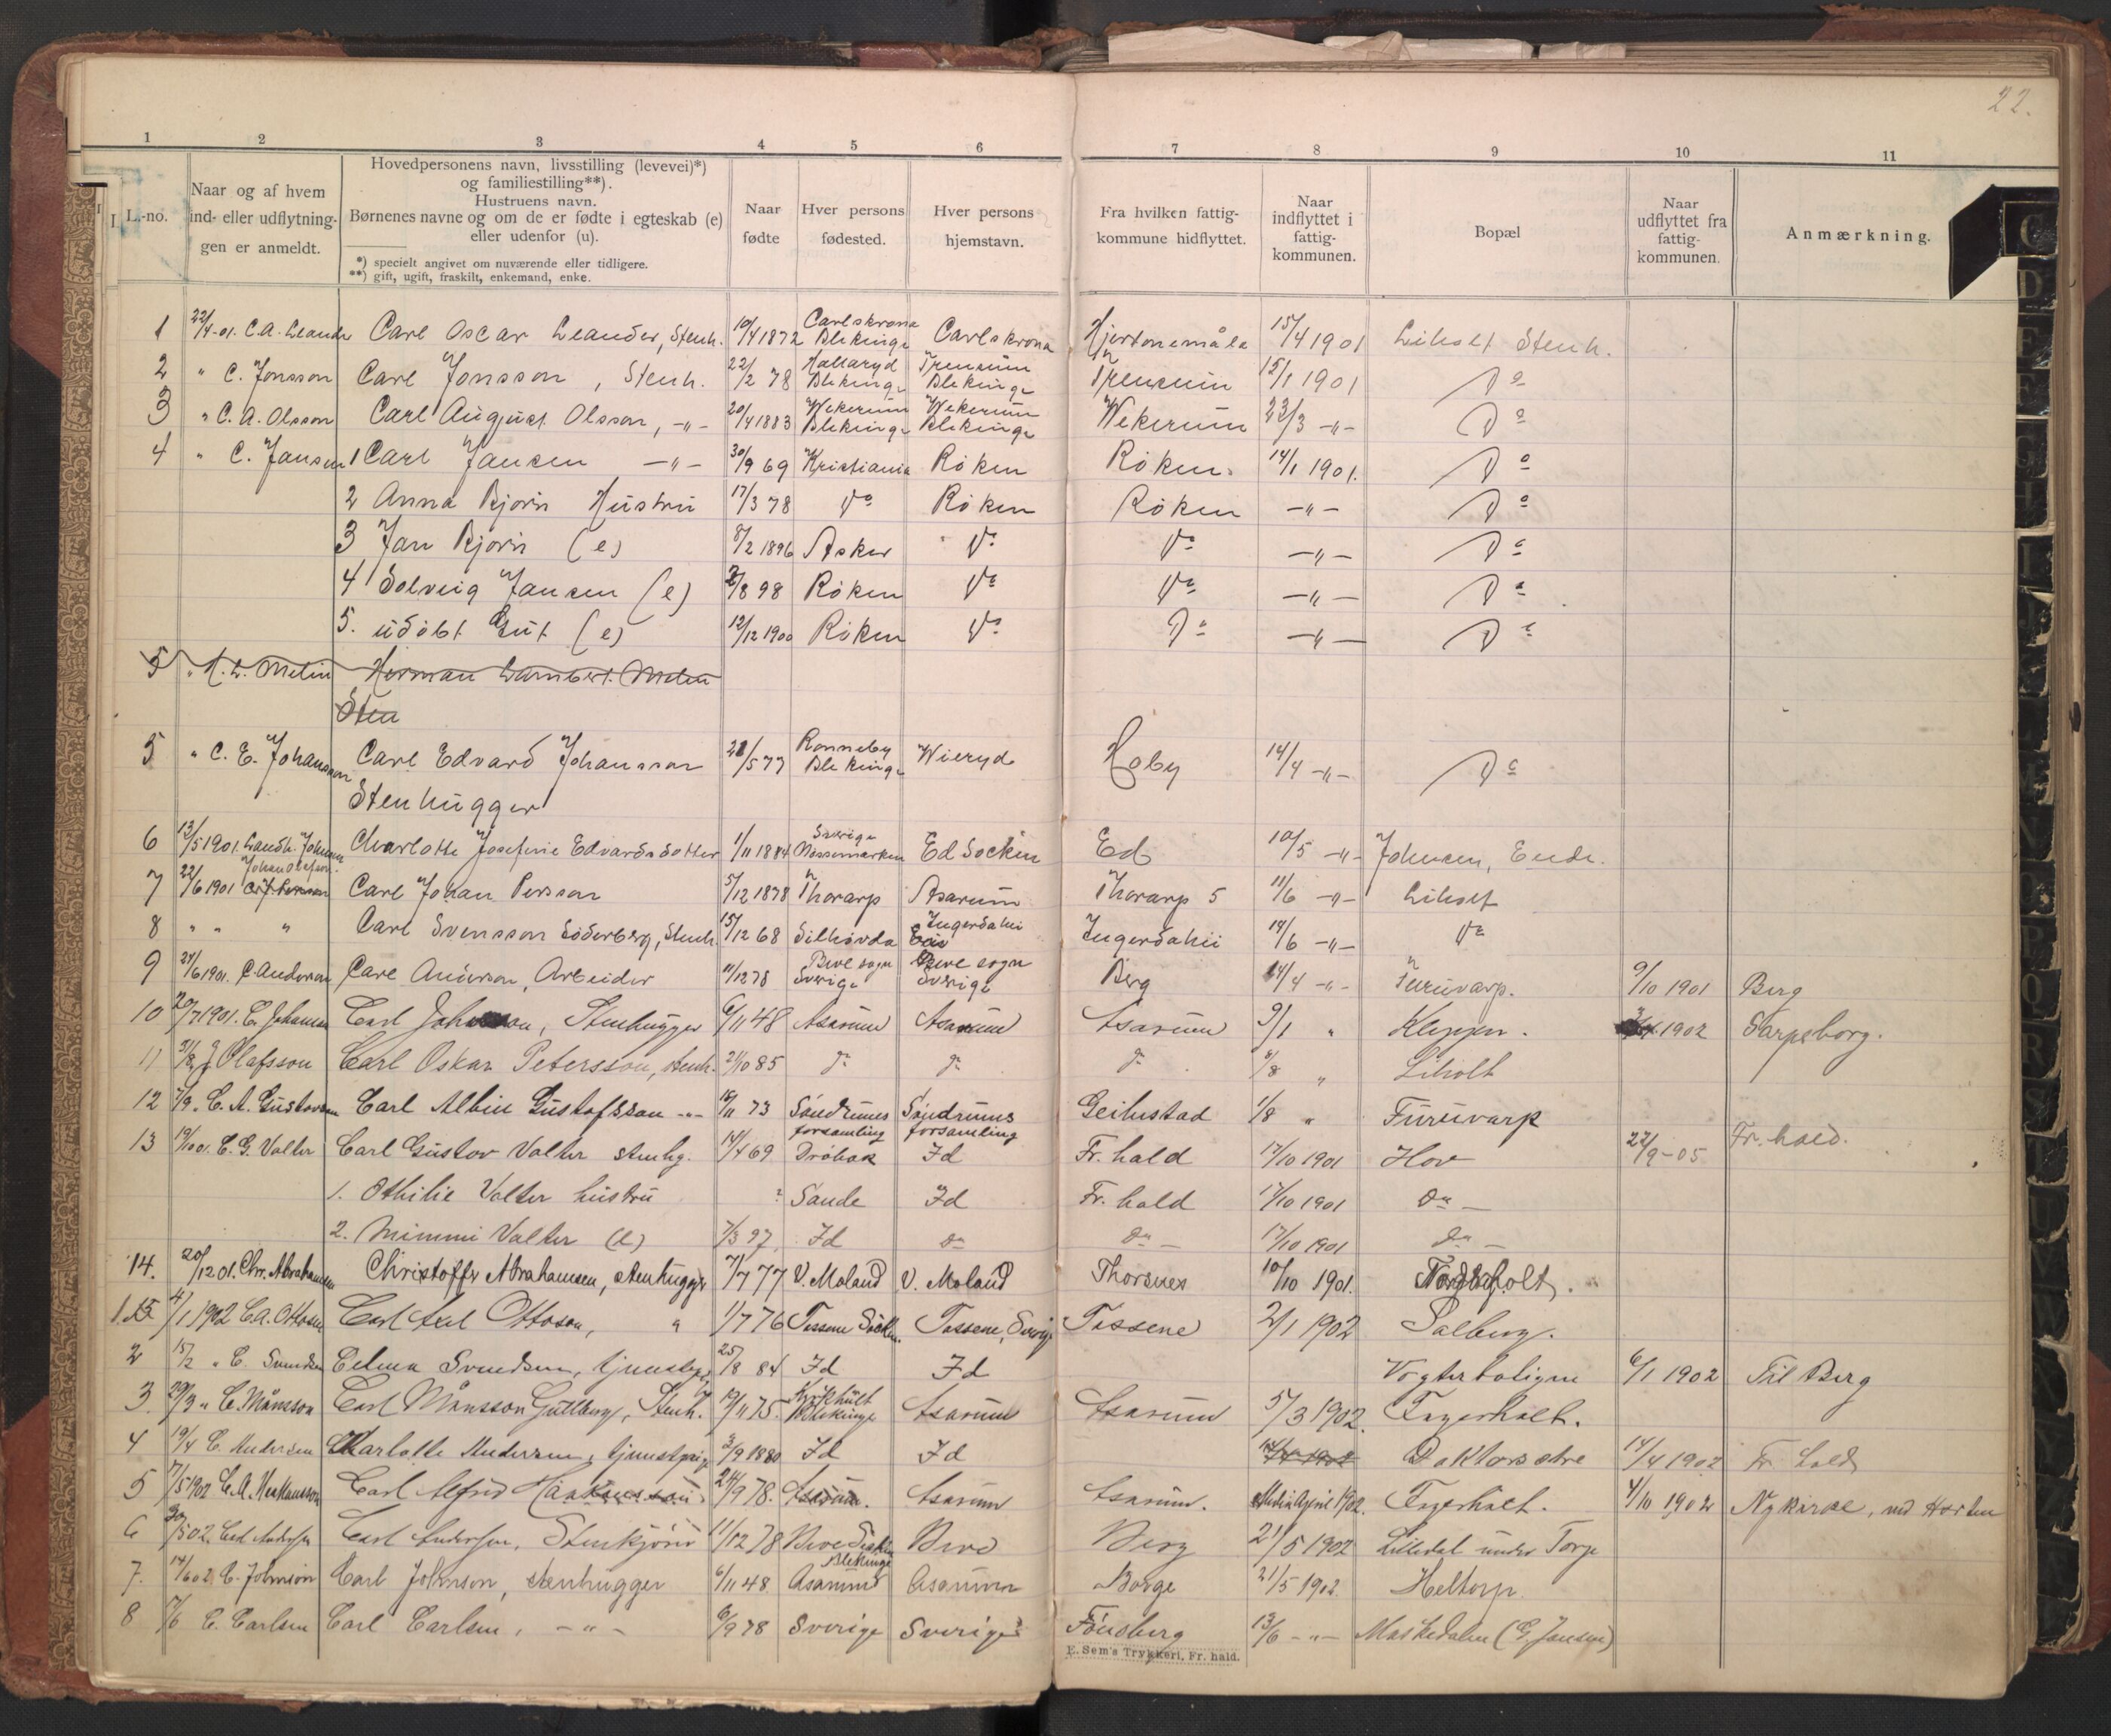 22.
1 2 3 4 5 6 7 8 9 10 11
L.-no.
Naar og af hvem ind- eller udflytningen er anmeldt.
Hovedpersonens navn, livsstilling (levevei)*) og familiestilling**).
Hustruens navn.
Børnenes navne og om de er fødte i egteskab (e) eller udenfor (u).
*) specielt angivet om nuværende eller tidligere.
**) gift, ugift, fraskilt, enkemand, enke.
Naar fødte
Hver persons fødested.
Hver persons hjemstavn.
Fra hvilken fattigkommune hidflyttet.
Naar indflyttet i fattigkommunen.
Bopæl
Naar udflyttet fra fattigkommunen.
Anmærkning.
1 22/4-01. C.A. Leander Carl Oscar Leander, Stenh. 10/4 1872 Carlskrona Blekinge Carlskrona Hjortonemåla 15/4 1901 Liholt Stenh.
2 " C. Jonsson Carl Jonsson, Stenh. 22/2 78 Hallaryd Blekinge Trensum Blekinge Trensum 15/1 1901 Do
3 " C. A. Olsson Carl August Olsson, -"- 20/4 1883 Wekerum Blekinge Wekerum Blekinge Wekerum 23/3 -"- Do
4 " C. Jansen 1 Carl Jansen -"- 30/9 69 Kristiania Röken Röken. 14/1 1901. Do
2 Anna Bjorn Hustru 17/3 78 Do Röken Röken -"- Do
3 Jan Bjorn (e) 8/2 1896 Asker Do Do -"- Do
4 Solveig Jansen (e) 2/8 98 Röken Do Do -"- Do
5. udöbt Gut (e) 12/12 1900 Röken Do Do -"- Do
5 " H. L. Melin Herman Lambert Melin
Sten
5 " C. E. Johansson Carl Edvard Johansson 21/5 77 Ronneby Blekinge Wieryd Hoby 14/4 -"- Do
Stenhugger
6 13/5 1901. Landh. Johnsen Charlotte Josefine Edvardsdotter 1/11 1884 Sverige Nössemarken Ed Socken Ed 10/5 -"- Johnsen, Ende.
7 22/6 1901 Johan Olafson. C. J. Persson Carl Johan Persson 5/12 1878 Thorarp Asarum Thorarp 5 11/6 -"- Liholt
8 " " " Carl Svensson Söderberg, Stenh. 15/12 68 Silhövda Ingerdahü Ingerdahü 14/6 -"- Do
9 24/6 1901. C. Anderson Carl Anderson, Arbeider 11/12 78 Bive sogn Sverige Bive sogn Sverige Berg 14/4 -"- Furuvarp. 9/10 1901 Berg
10 20/7 1901. C. Johansen Carl Johnson, Stenhugger 6/11 48 Asarum Asarum Asarum 9/1 " Kleppen. 1902 Sarpsborg.
11 3/8 J. Olafsson Carl Oskar Petersson, stenh. 21/10 85 do do do 6/8 " Liholt
12 7/9. C. A. Gustavsen Carl Albin Gustafsson -"- 16/11 73 Söndrums forsamling Söndrums forsamling Geilustad 1/8 " Furuvarp
13 19/10 01. C. G. Valter Carl Gustav Valter stenhg. 14/4 69 Dröbak Id Fr. hald 17/10 1901 Hov 22/9-05 Fr. hald.
1. Othilie Valter hustru ? Sande Id Fr. hald 17/10 1901 Do -
2. Mimmi Valter (e) 7/3 97. Id Do Do - 17/10 1901 Do -
14. 20/12 01. Chr. Abrahamsen Christoffer Abrahamsen, stenhugger 7/7 77 V. Moland V. Moland Thorsnes 10/10 1901. Tordisholt.
1. 15 4/1 1902 C.A. Ottosen Carl Axel Ottoson, " 1/7 76 Tossene Socken. Tossene, Sverige Tossene 2/1 1902 Solberg.
2 15/2 " C. Svendsen Celma Svendsen, tjenstepige 25/8 84 Id Id Vogterboligen 6/1 1902 Til Berg
3. 29/3 " C. Månsson Carl Månsson Gullberg, Stenh. 19/11 75. Kyrkhult Blekinge Asarum Asarum 5/3 1902. Fagerholt.
4 19/4 C. Andersen Charlotte Andersen, tjenstpige 3/9 1880 Id Id 14/4 1902 Doktorsætre 14/4 1902 Fr. hald
5 7/5 1902 C. A. Haakansson Carl Alfrid Håkansson 24/9 78. Asarum. Asarum Asarum. Medio April 1902. Fagerholt. 4/10 1902 Nykirke, ved Horten
6 30/5 02. Carl Andersen Carl Andersen, Stenkjörer 11/12 78 Bive Bive Berg 21/5 1902 Lilledal under Torp
7. 14/6 02. C. Johnson Carl Johnson, stenhugger 6/11 48. Asarum Blekinge Asarum Borge 21/5 1902. Heltorp.
8 7/6 C. Carlsen Carl Carlsen, -"- 6/9 78 Sverige Sverige Tönsberg 13/6 -"- Maskedalen (G. Jansen)
E. Sem's Trykkeri, Fr. hald.